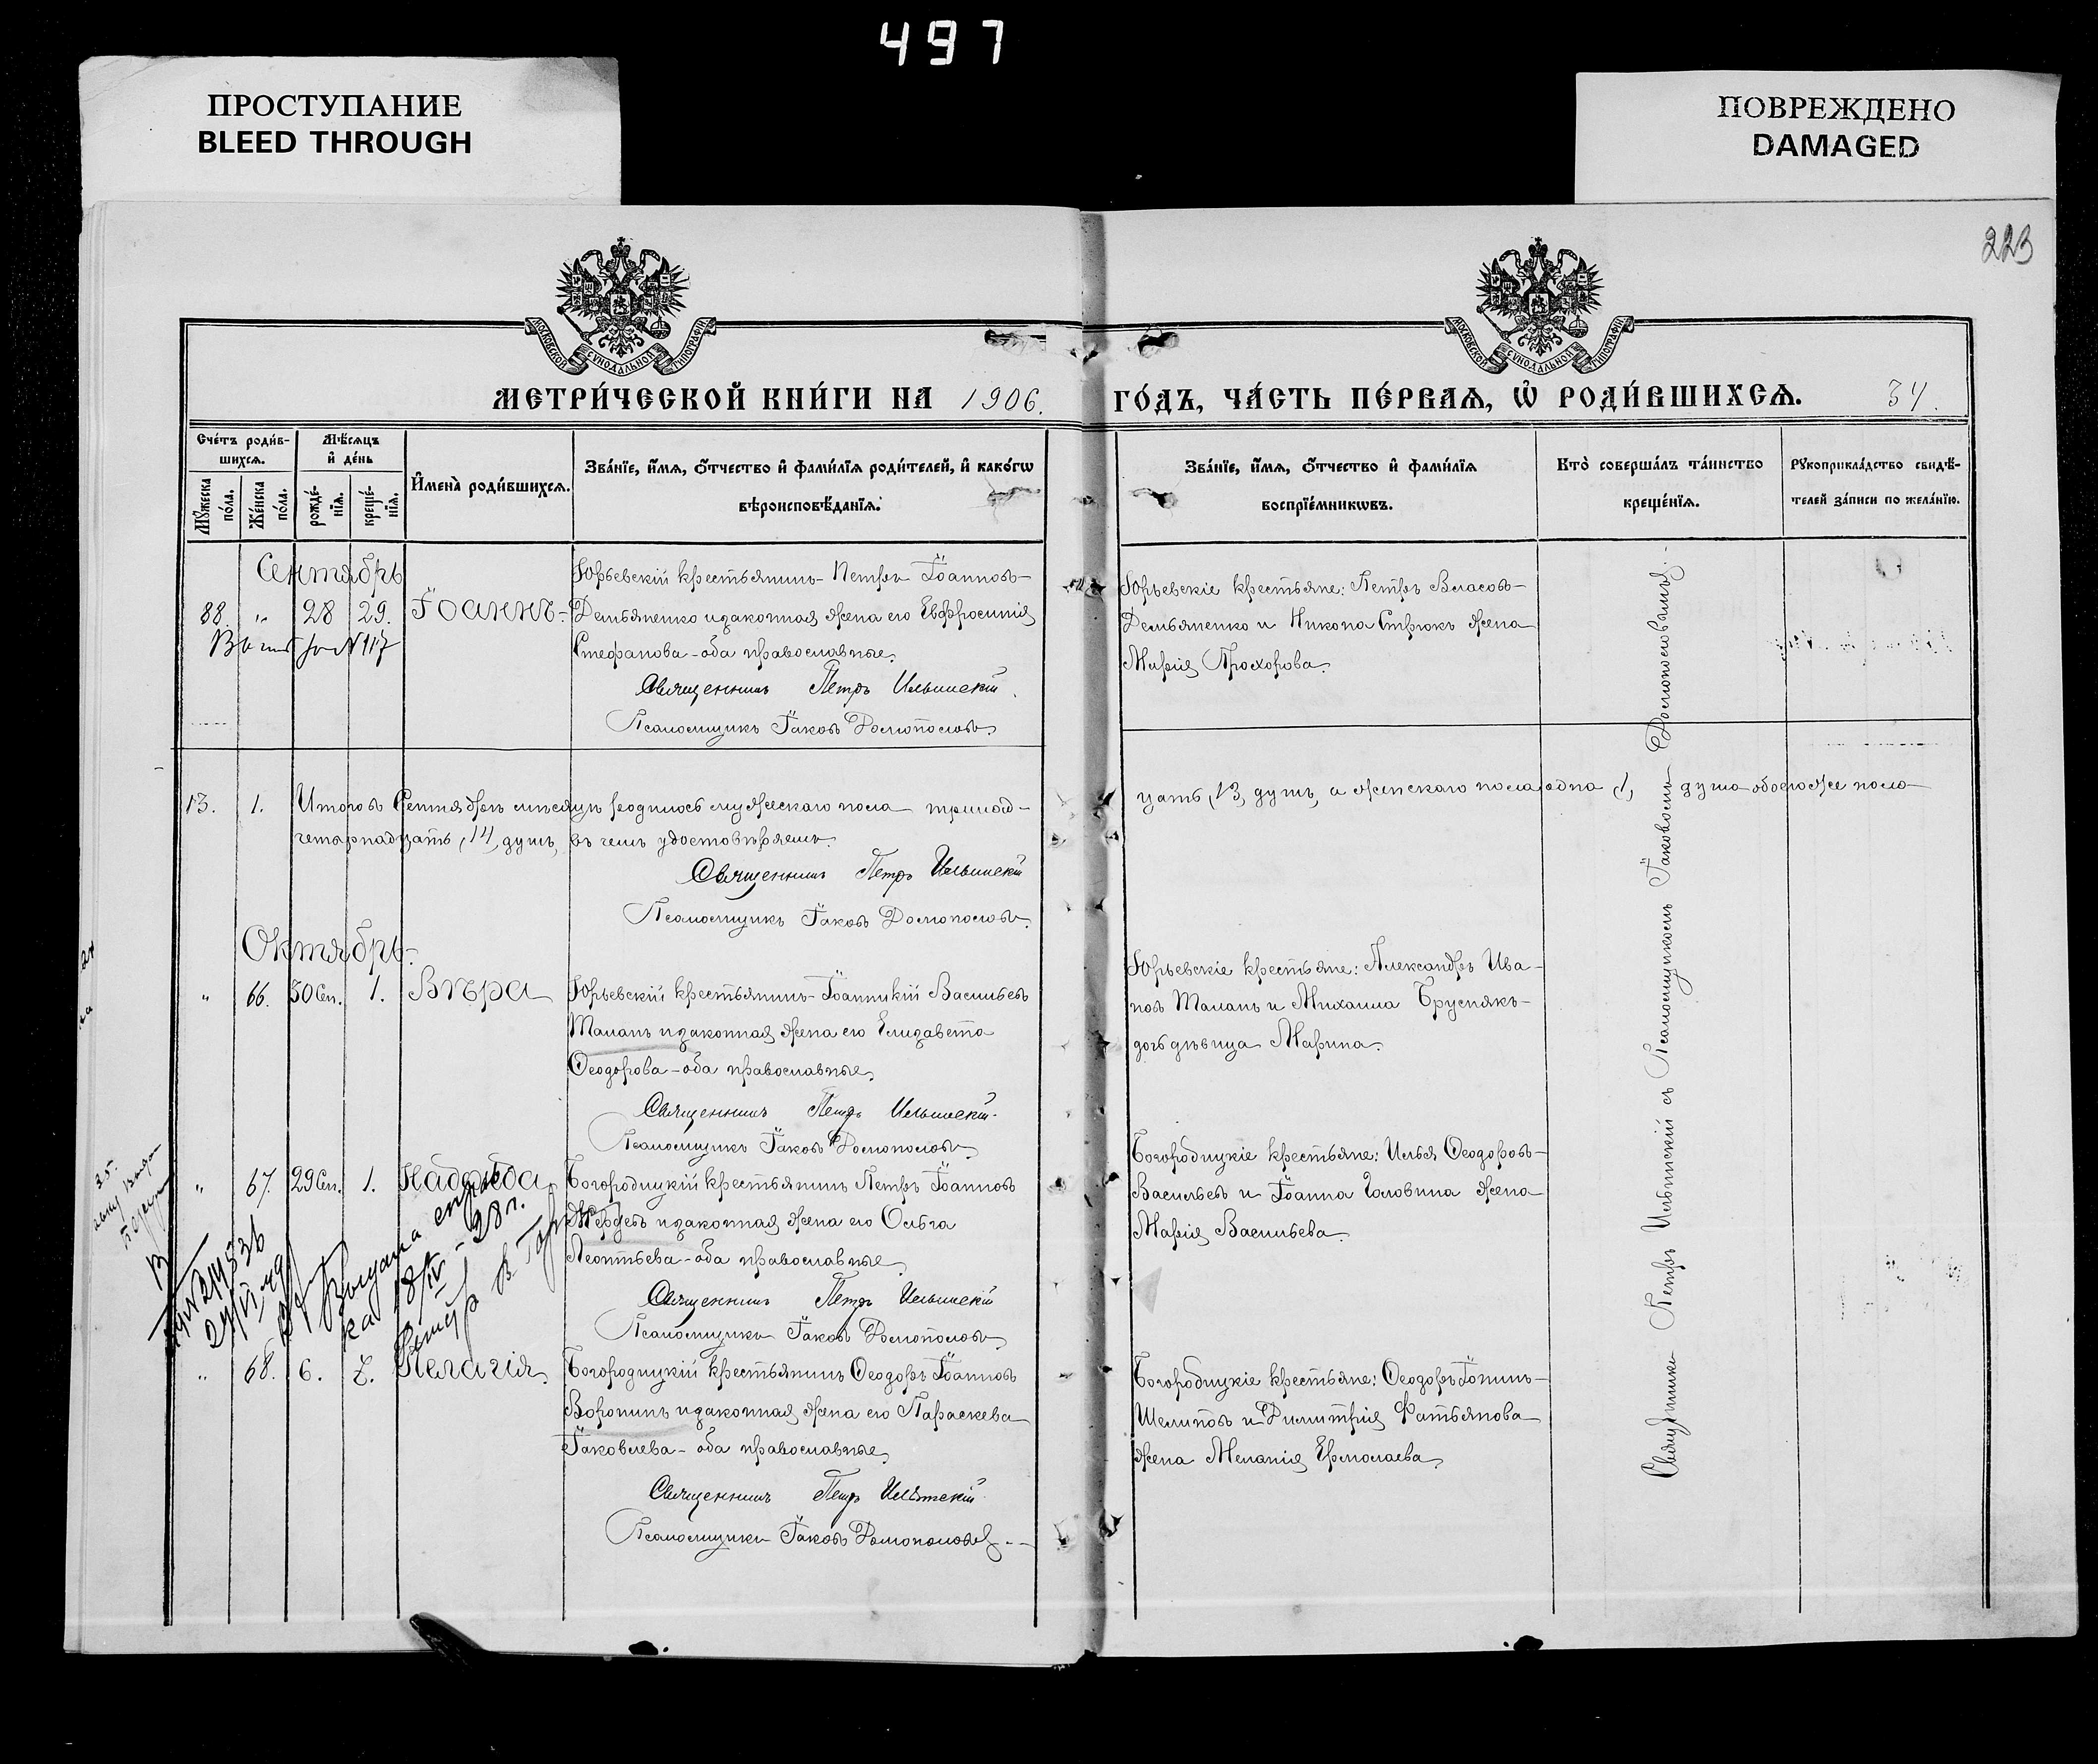 497
ПРОСТУПАНИЕ
BLEED THROUGH
ПОВРЕЖДЕНО
DAMAGED
223
МОСКОВСКОЙ СУНОДАЛЬНОЙ ТИПОГРАФІИ
МОСКОВСКОЙ СУНОДАЛЬНОЙ ТИПОГРАФІИ
МЕТРИ́ЧЕСКОЙ КНИ́ГИ НА 1906. ГО́ДЪ, ЧА́СТЬ ПЕ́РВАѦ, Ѡ҆ РОДИ́ВШИХСѦ. 34.
Сче́тъ роди́в-
шихсѧ.
Мѣ́сѧцъ
и҆ де́нь
Мꙋ́жеска по́ла.
Же́нска по́ла.
рожде́-нїѧ.
креще́-нїѧ.
И҆мена̀ роди́вшихсѧ.
Зва́нїе, и҆́мѧ, ѻ҆́тчество и҆ фами́лїѧ роди́телей, и҆ како́гѡ
вѣроисповѣ́данїѧ.
Зва́нїе, и҆́мѧ, ѻ҆́тчество и҆ фами́лїѧ
воспрїе́мникѡвъ.
Кто̀ соверша́лъ та́инство
креще́нїѧ.
Рꙋкоприкла́дство свидѣ́-
телей за́писи по жела́нїю.
Сентябрь
88. " 28 29. Іоаннъ.
Юрьевскій крестьянинъ Петръ Іоанновъ
Демьяненко и законная жена его Евфросинія
Стефанова - оба православные.
Священникъ Петръ Ильинскій.
Псаломщикъ Іаковъ
Юрьевскіе крестьяне: Петръ Власовъ
Демьяненко и Никона Стрюкъ жена
Марія Прохорова.
№ 117
13. 1. Итого въ Сентябрѣ мѣсяцѣ родилось мужескаго пола тринад-
цать, 13, душъ, а женскаго пола одна, 1, душа обоего же пола
четырнадцать, 14, душъ, въ чемъ удостовѣряемъ.
Священникъ Петръ Ильинскій
Псаломщикъ Іаковъ
Октябрь
" 66. 30 Сен. 1. Вѣра
Юрьевскій крестьянинъ Іоанникій Васильевъ
Таланъ и законная жена его Елизавета
Ѳеодорова - оба православные.
Священникъ Петръ Ильинскій.
Псаломщикъ Іаковъ
Юрьевскіе крестьяне: Александръ Ива-
новъ Таланъ и Михаила Бруснякъ
дочь дѣвица Марина.
" 67. 29 Сен. 1. Надежда
Богородицкій крестьянинъ Петръ Іоанновъ
и законная жена его Ольга
Леонтьева - оба православные.
Священникъ Петръ Ильинскій
Псаломщикъ Іаковъ
Богородицкіе крестьяне: Илья Ѳеодоровъ
Васильевъ и Іоанна Головина жена
Марія Васильева.
Выдана
18/IV - 28 г.
" 68. 6. 7. Пелагія.
Богородицкій крестьянинъ Ѳеодоръ Іоанновъ
Воронинъ и законная жена его Параскева
Іаковлева - оба православные.
Священникъ Петръ Ильинскій.
Псаломщикъ Іаковъ
Богородицкіе крестьяне: Ѳеодоръ
и Димитрія Фатьянова
жена Меланія Ермолаева.
Священникъ Петръ Ильинскій съ Псаломщикомъ Іаковомъ